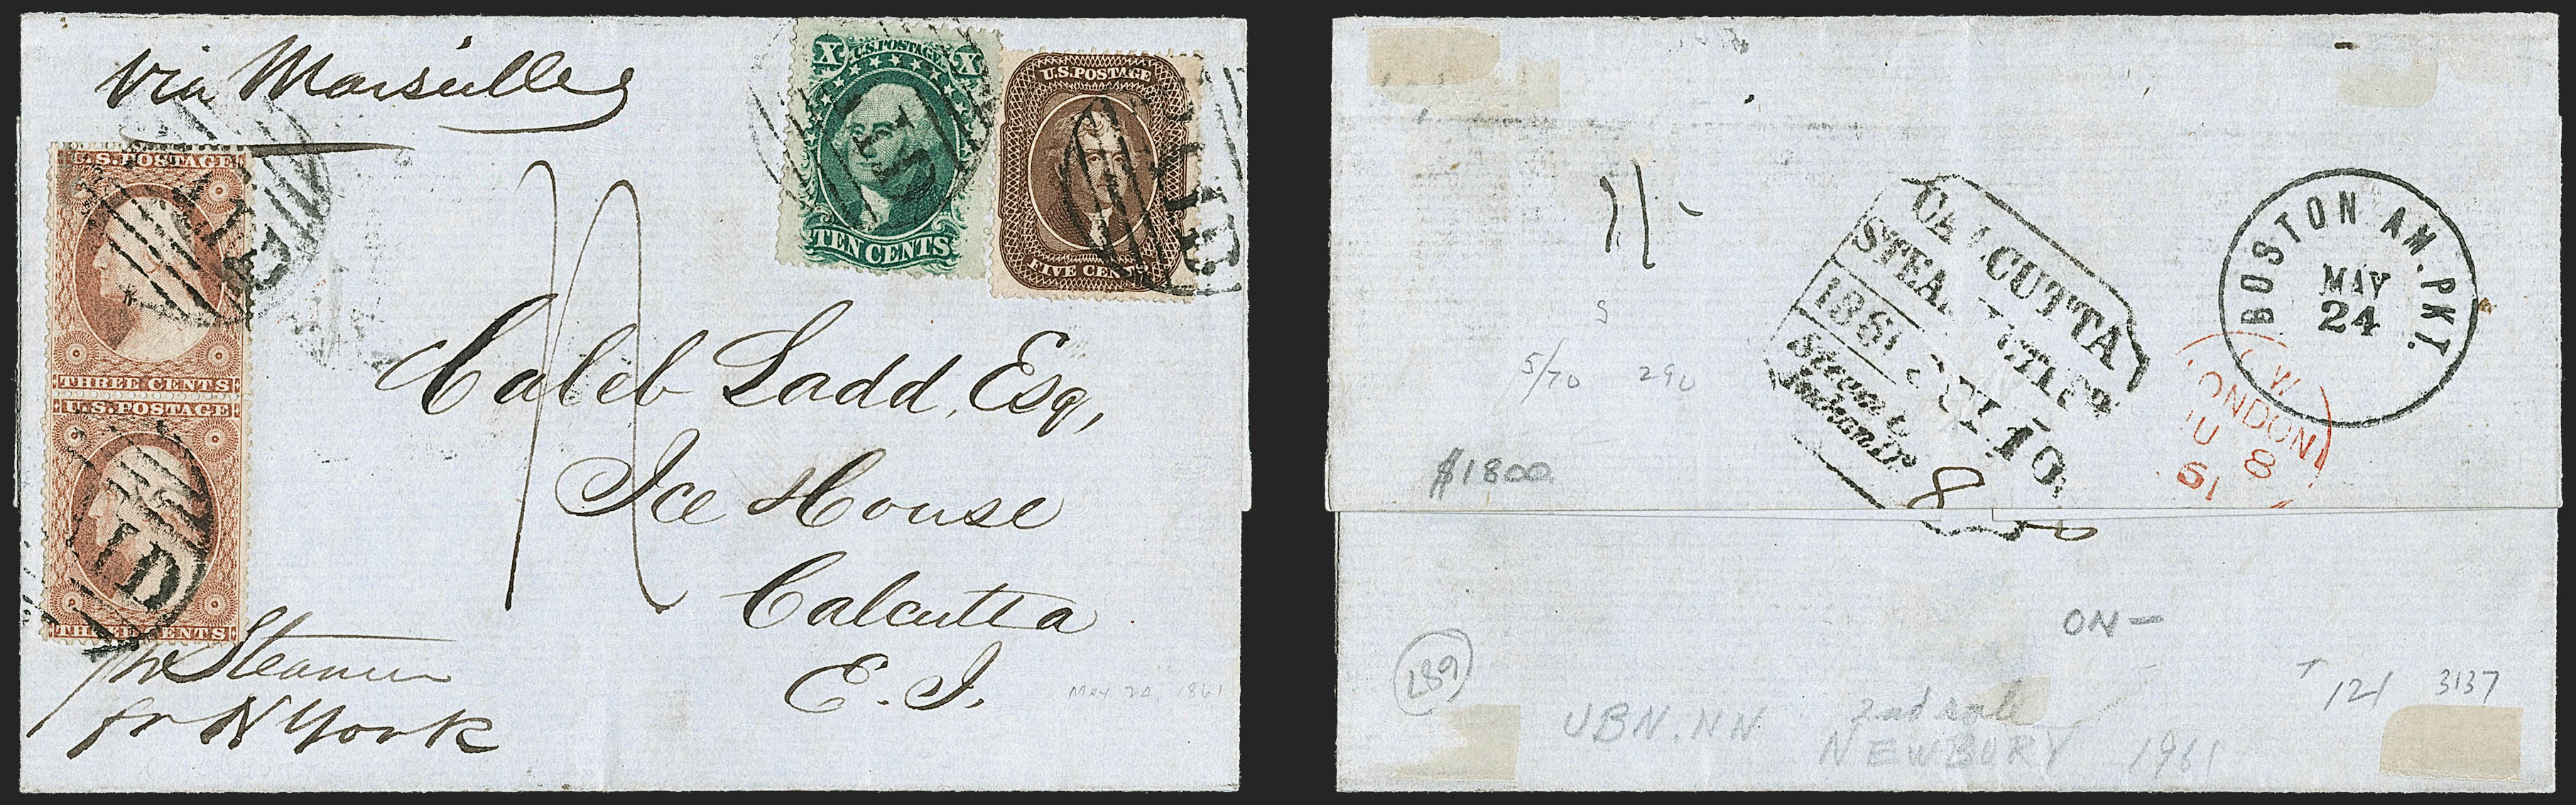 via Marseilles
U.S. POSTAGE
X X
TEN CENTS
U.S. POSTAGE
FIVE CENTS
U.S. POSTAGE
THREE CENTS
U.S. POSTAGE
THREE CENTS
PAID
Caleb Ladd, Esq,
Ice House
Calcutta
E. I.
MAY 24, 1861
pr Steamer
fr N York
BOSTON AM. PKT.
MAY
24
LONDON
JU 8
61
CALCUTTA
STEAM LETTER
1861 JUY 10
Steam &
Indian Do
8
1/-
5/70 290
$1800
ON-
289
T 121 3137
UBN.NN
2nd sale
NEWBURY 1961